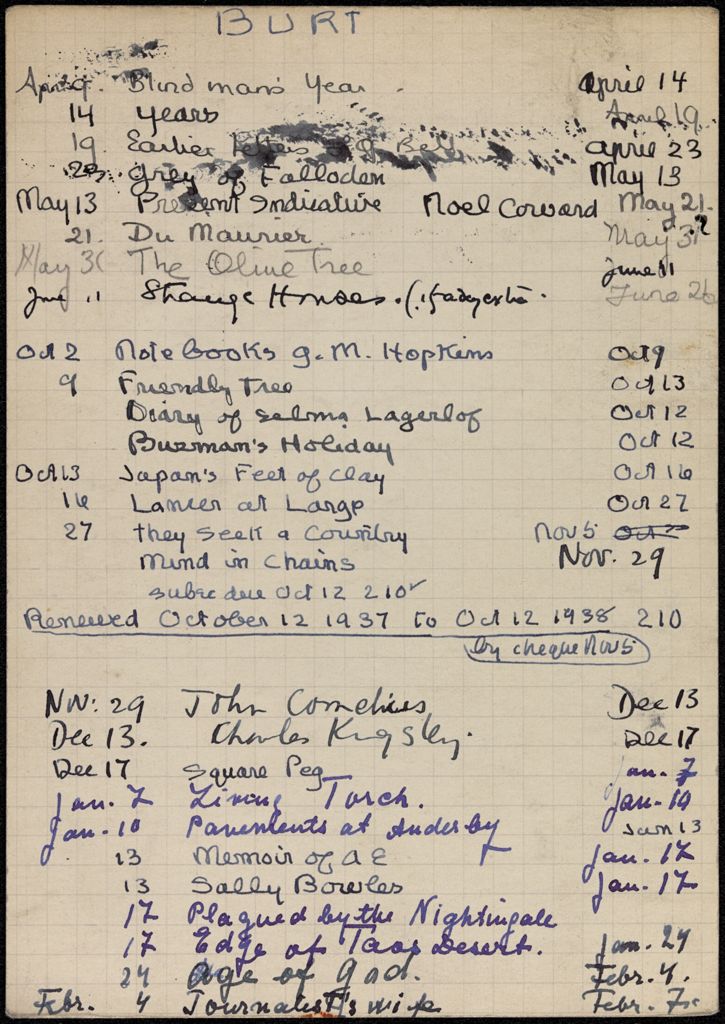 BURT
Apr 9. Blind man's Year. april 14
14 Years April 19
19 Earlier Letters of G Bell april 23
23. Grey of Falloden May 13
May 13 Present Indicative Noel Coward May 21.
21. Du Maurier May 31
May 31 The Olive Tree June 11
June 11 Strange Houses. June 26
Oct 2 Note Books G. M. Hopkins Oct 9
9 Friendly Tree Oct 13
Diary of Selma Lagerlof Oct 12
Busman's Holiday Oct 12
Oct 13 Japan's Feet of Clay Oct 16
16 Lancer at Large Oct 27
27 They Seek a Country Nov 5
Mind in Chains Nov. 29
subsc due Oct 12 210
Renewed October 12 1937 to Oct 12 1938 210
by cheque Nov 5
Nov: 29 John Cornelius Dec 13
Dec 13. Charles Kingsley. Dec 17
Dec 17 Square Peg Jan. 7
Jan. 7 Living Torch. Jan. 10
Jan. 10 Pavements at Anderby Jan 13
13 Memoir of A E Jan. 17
13 Sally Bowles Jan. 17
17 Plagued by the Nightingale
17 Edge of Taos Desert. Jan. 24
24 Age of Gold. Febr. 4.
Febr. 4 Journalist's wife Febr. 7